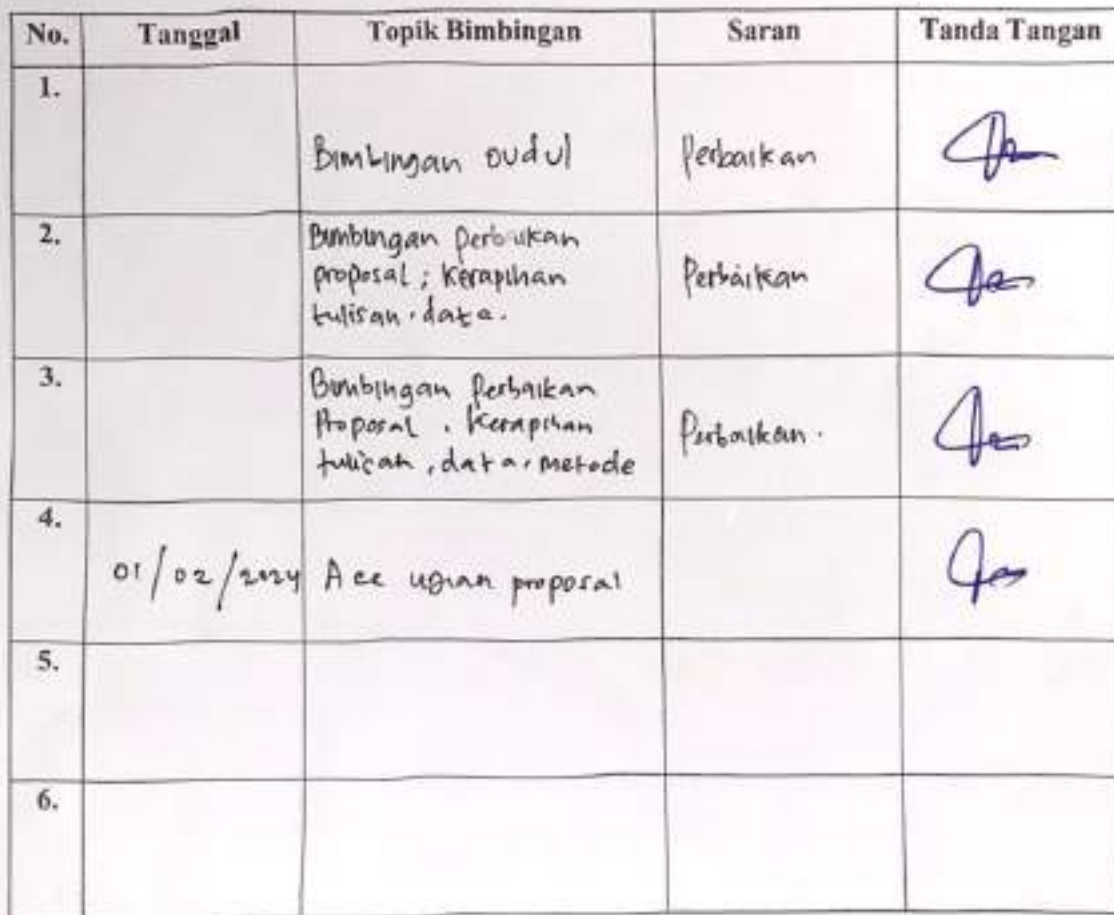 No. Tanggal Topik Bimbingan Saran Tanda Tangan
1.
Bimbingan Judul Perbaikan
2.
Bimbingan Perbaikan
proposal ; kerapihan Perbaikan
tulisan, data.
3.
Bimbingan Perbaikan
Proposal , kerapihan Perbaikan.
tulisan, data, metode
4.
01/02/2024 Acc ujian proposal
5.
6.